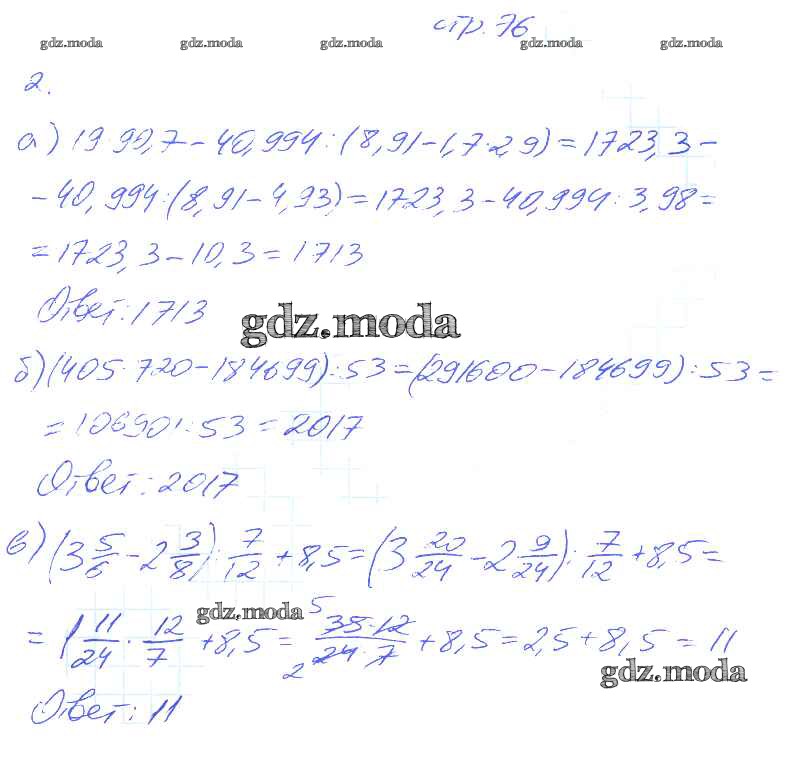 стр. 76
gdz.moda gdz.moda gdz.moda gdz.moda gdz.moda gdz.moda
2.
а) 19·90,7 - 40,994 : (8,91 - 1,7·2,9) = 1723,3 -
- 40,994 : (8,91 - 4,93) = 1723,3 - 40,994 : 3,98 =
= 1723,3 - 10,3 = 1713
Ответ: 1713
gdz.moda
б) (405·720 - 184699) : 53 = (291600 - 184699) : 53 =
= 106901 : 53 = 2017
Ответ: 2017
в) (3 5/6 - 2 3/8) : 7/12 + 8,5 = (3 20/24 - 2 9/24) : 7/12 + 8,5 =
gdz.moda
= 1 11/24 · 12/7 + 8,5 = 5 35·12/2 24·7 + 8,5 = 2,5 + 8,5 = 11
gdz.moda
Ответ: 11